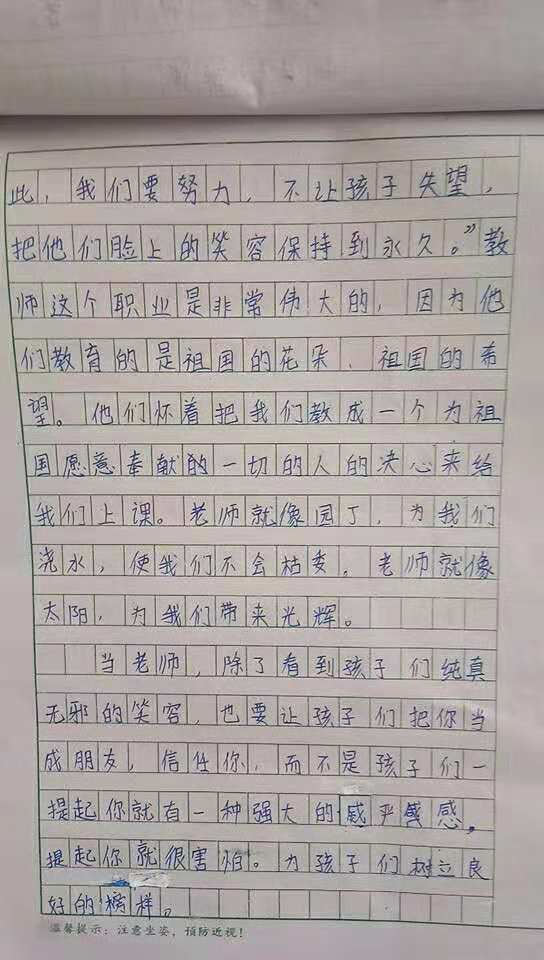 此，我们要努力，不让孩子失望，
把他们脸上的笑容保持到永久。”教
师这个职业是非常伟大的，因为他
们教育的是祖国的花朵、祖国的希
望。他们怀着把我们教成一个为祖
国愿意奉献的一切的人的决心来给
我们上课。老师就像园丁，为我们
浇水，使我们不会枯委。老师就像
太阳，为我们带来光辉。
当老师，除了看到孩子们纯真
无邪的笑容，也要让孩子们把你当
成朋友，信任你，而不是孩子们一
提起你就有一种强大的威严感，
提起你就很害怕。为孩子们树立良
好的榜样。
温馨提示：注意坐姿，预防近视！